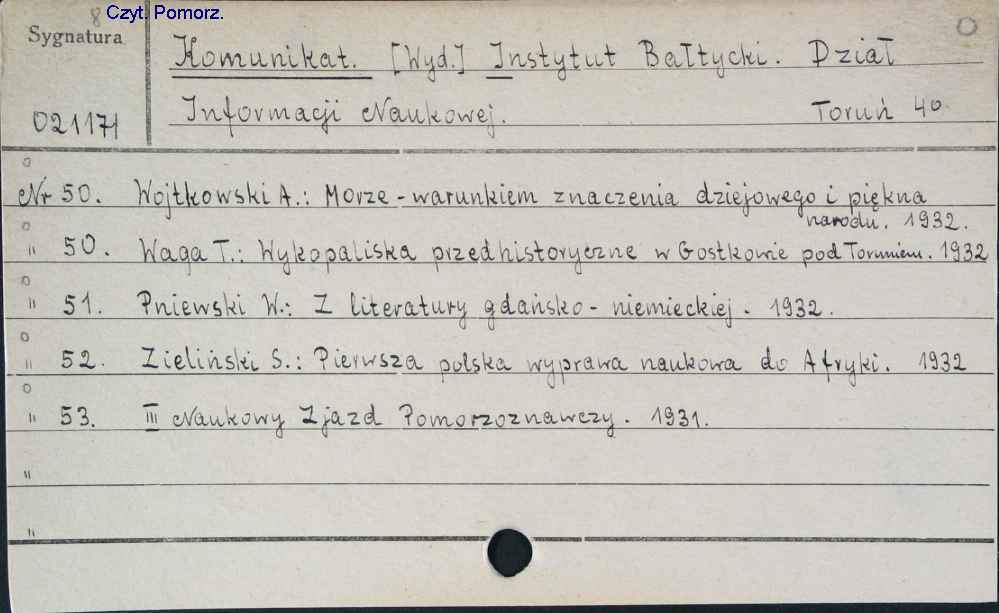 8 Czyt. Pomorz.
Sygnatura
021171
Komunikat. [Wyd.] Instytut Bałtycki. Dział
Informacji Naukowej. Toruń 4o
Nr 50. Wojtkowski A.: Morze - warunkiem znaczenia dziejowego i piękna
narodu. 1932.
" 50. Waga T.: Wykopaliska przedhistoryczne w Gostkowie pod Toruniem. 1932
" 51. Pniewski W.: Z literatury gdańsko - niemieckiej. 1932.
" 52. Zieliński S.: Pierwsza polska wyprawa naukowa do Afryki. 1932
" 53. III Naukowy Zjazd Pomorzoznawczy. 1931.
"
"